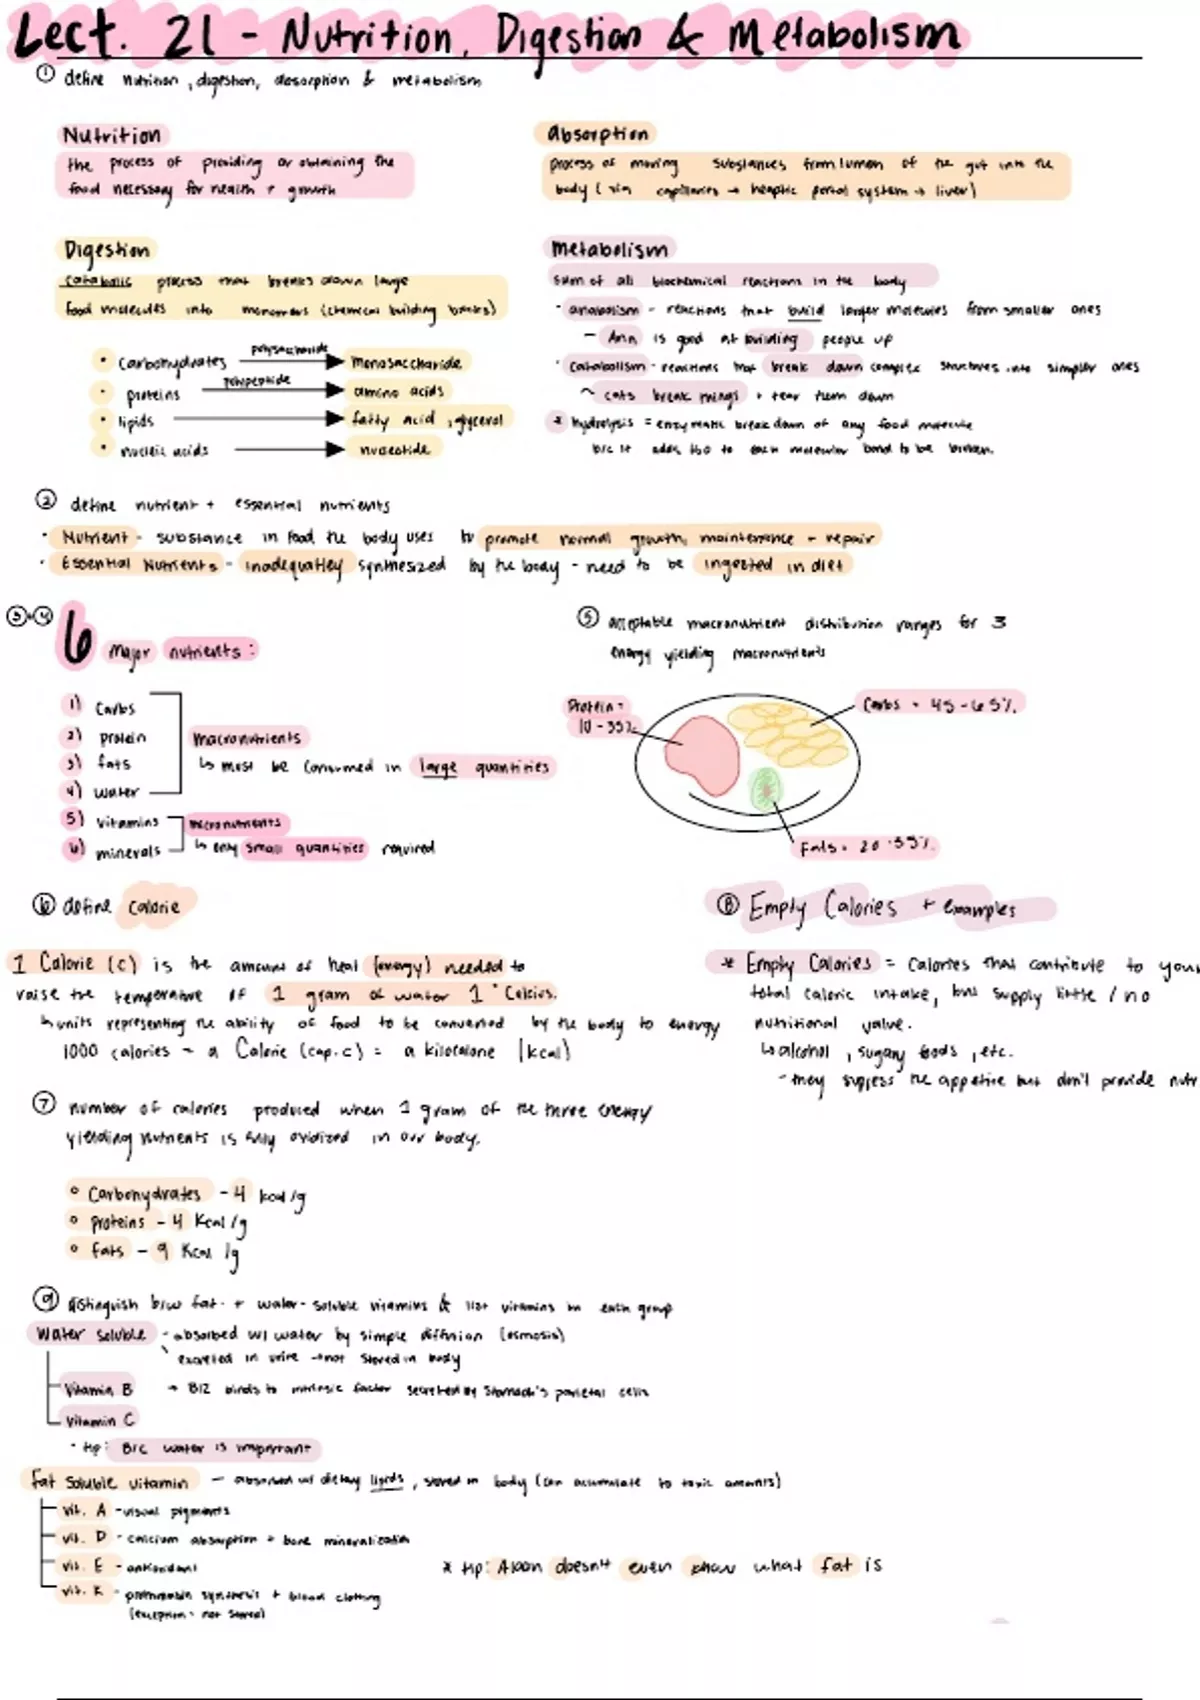 Lect. 21 - Nutrition, Digestion & Metabolism
① define nutrition, digestion, absorption & metabolism
Nutrition
the process of providing or obtaining the
food necessary for health + growth
Absorption
process of moving substances from lumen of the gut into the
body (via capillaries → heaptic portal system → liver)
Digestion
catabolic process that breaks down large
food molecules into monomers (chemical building blocks)
• carbohydrates polysaccharide monosaccharide
• proteins polypeptide amino acids
• lipids fatty acid, glycerol
• nucleic acids nucleotide
Metabolism
sum of all biochemical reactions in the body
- anabolism - reactions that build larger molecules from smaller ones
- Ann is good at building people up
· catabolism - reactions that break down complex structures into simpler ones
~ cats break things + tear them down
* hydrolysis = enzymatic breakdown of any food molecule
b/c it adds H2O to each molecular bond to be broken.
② define nutrient + essential nutrients
· Nutrient - substance in food the body uses to promote normal growth, maintenance + repair
· Essential Nutrients - inadequatley synthesized by the body - need to be ingested in diet
③+④ 6 major nutrients:
1) Carbs
2) protein
3) fats
4) water
macronutrients
↳ must be consumed in large quantities
5) vitamins
6) minerals
micronutrients
↳ only small quantities required
⑤ acceptable macronutrient distribution ranges for 3
energy yielding macronutrients
Protein =
10-35%
Carbs = 45-65%
Fats = 20-35%
⑥ define calorie
1 Calorie (c) is the amount of heat (energy) needed to
raise the temperature of 1 gram of water 1° Celcius.
↳ units representing the ability of food to be converted by the body to energy
1000 calories = a Calorie (cap. c) = a kilocalorie (kcal)
⑧ Empty Calories + examples
* Empty Calories = calories that contribute to your
total caloric intake, but supply little / no
nutritional value.
↳ alcohol, sugary foods, etc.
- they suppress the appetite but don't provide nutr
⑦ number of calories produced when 1 gram of the three energy
yielding nutrients is fully oxidized in our body.
° Carbohydrates - 4 kcal/g
° proteins - 4 Kcal/g
° fats - 9 Kcal/g
⑨ distinguish b/w fat- + water-soluble vitamins & list vitamins in each group
Water soluble - absorbed w/ water by simple diffusion (osmosis)
excreted in urine → not stored in body
Vitamin B → B12 binds to intrinsic factor secreted by stomach's parietal cells
Vitamin C
· tip: B/c water is important
fat soluble vitamin - absorbed w/ dietary lipids, stored in body (can accumulate to toxic amounts)
vit. A - visual pigments
vit. D - calcium absorption + bone mineralization
vit. E - antioxidant
* tip: Adan doesn't even know what fat is
vit. K - prothrombin synthesis + blood clotting
(exception - not stored)